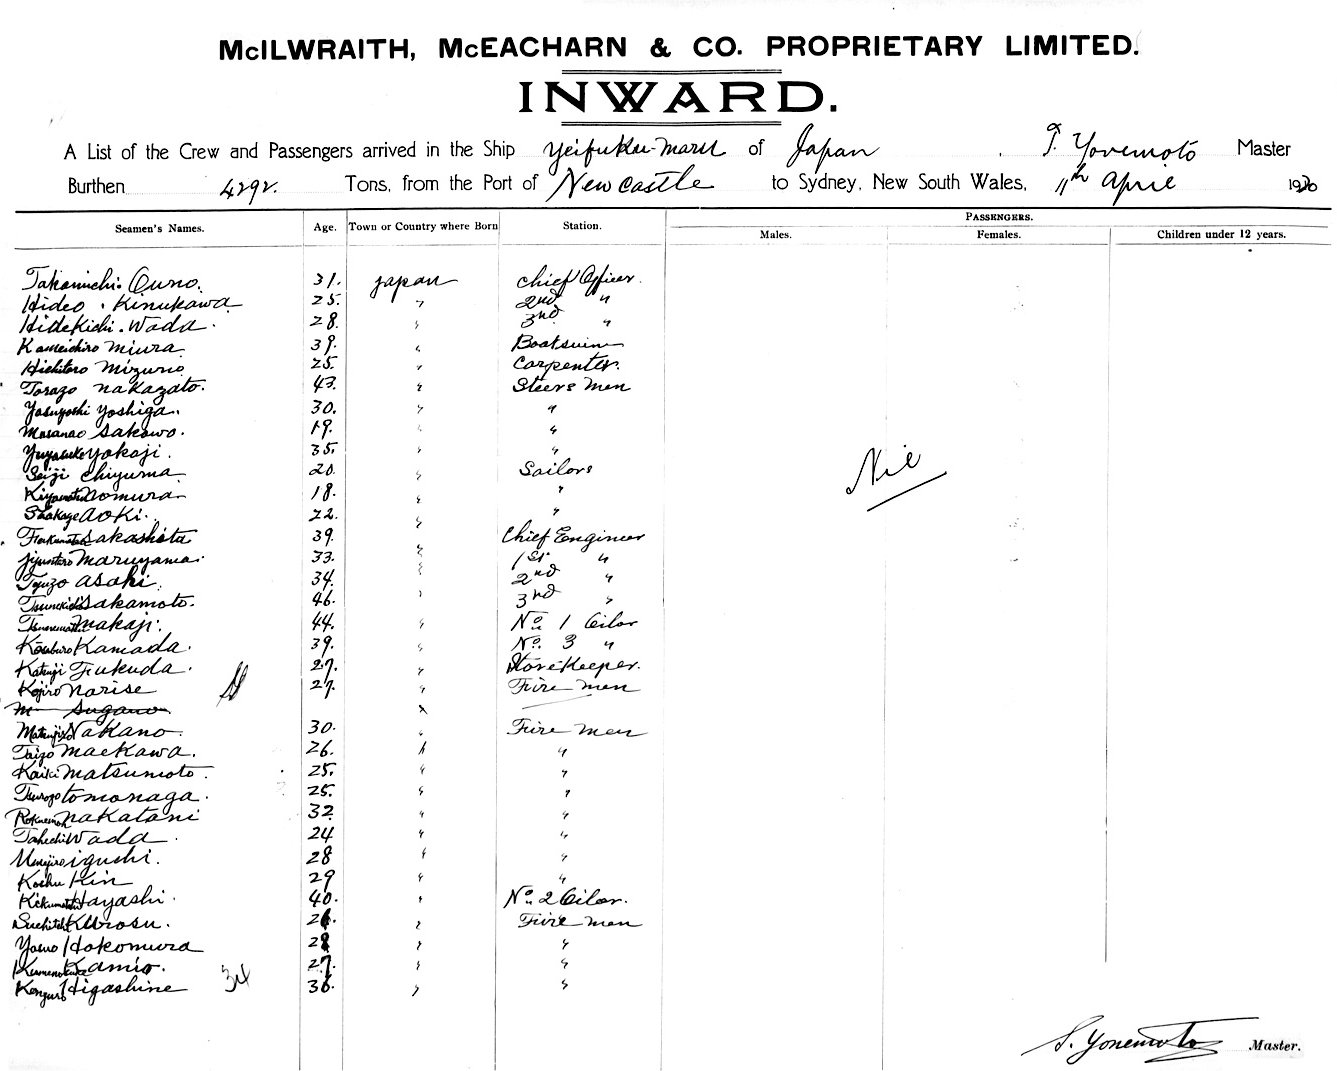 McILWRAITH, McEACHARN & CO. PROPRIETARY LIMITED.
INWARD.
A List of the Crew and Passengers arrived in the Ship Yeifuku Maru of Japan, Yonemoto Master
Burthen 4292. Tons, from the Port of Newcastle to Sydney, New South Wales, 11th April 1920
Seamen's Names. Age. Town or Country where Born Station. PASSENGERS.
Males. Females. Children under 12 years.
Takamichi Ouno. 31. Japan Chief Officer.
Hideo Kinukawa 25. " 2nd "
Hidekichi Wada. 28. " 3rd "
Kameichiro Miura 39. " Boatswin
Hichitaro Mizuno 25. " Carpenter.
Torazo Nakazato. 43. " Steers Men
Yasuyoshi Yoshiga. 30. " "
Masanao Sakawo. 19. " "
Yokoji. 35. " "
Seiji Chiyuma 20. " Sailors
Nomura 18. " "
Aoki. 22. " "
Sakashita 39. " Chief Engineer
Jyuntaro Maruyama. 33. " 1st "
Toyuzo Asahi. 34. " 2nd "
Tsunekichi Sakamoto. 46. " 3rd "
Nakaji. 44. " No. 1 Oiler
Kamada. 39. " No. 3 "
Katsuji Fukuda. 27. " Store Keeper.
Kojiro Narise 27. " Fire men
M Sugano "
Nakano. 30. " Fire men
Taizo Maekawa. 26. " "
Kaiki Matsumoto. 25. " "
Tomonaga. 25. " "
Nakatani 32 " "
Wada. 24 " "
Iguchi. 28 " "
Kin 29 " "
Hayashi. 40. " No. 2 Oiler.
Kurosu. 26. " Fire men
Yasuo Hokomura 28 " "
Kamio. 27. " "
34
Higashine 36. " "
Nil
S. Yonemoto Master.